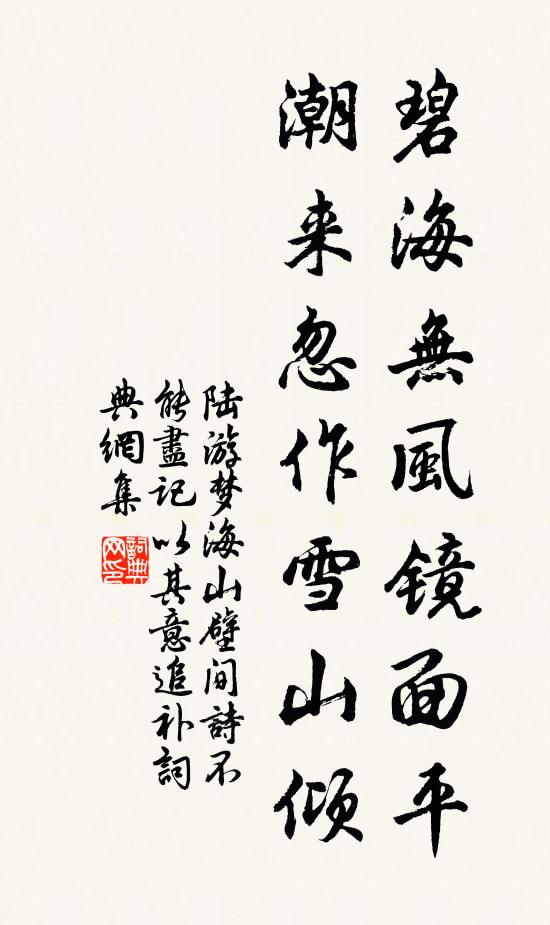 碧海無風镜面平
潮来忽作雪山倾
陆游梦海山壁间詩不
能盡记以其意追补詞
典網集
詞典網印